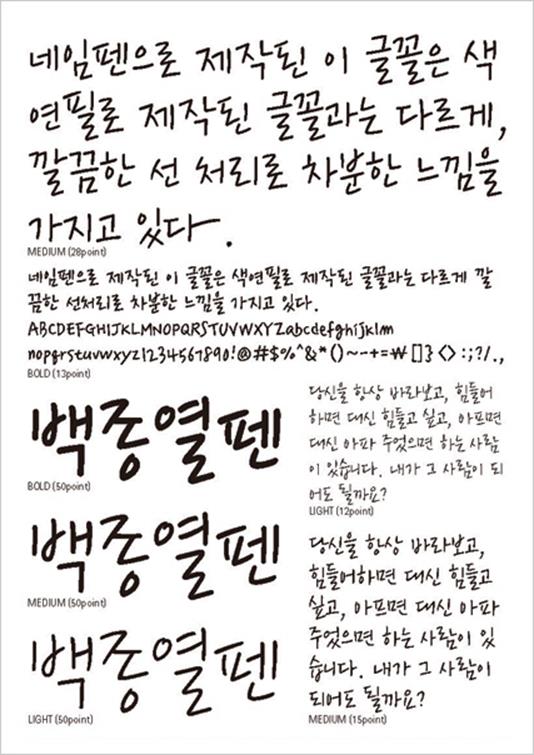 네임펜으로 제작된 이 글꼴은 색
연필로 제작된 글꼴과는 다르게,
깔끔한 선 처리로 차분한 느낌을
가지고 있다.
MEDIUM (28point)
네임펜으로 제작된 이 글꼴은 색연필로 제작된 글꼴과는 다르게 깔
끔한 선처리로 차분한 느낌을 가지고 있다.
ABCDEFGHIJKLMNOPQRSTUVWXYZabcdefghijklm
nopqrstuvwxyz1234567890!@#$%^&*()~-+=₩[]}<>:;?/.,
BOLD (13point)
백종열펜
BOLD (50point)
백종열펜
MEDIUM (50point)
백종열펜
LIGHT (50point)
당신을 항상 바라보고, 힘들어
하면 대신 힘들고 싶고, 아프면
대신 아파 주었으면 하는 사람
이 있습니다. 내가 그 사람이 되
어도 될까요?
LIGHT (12point)
당신을 항상 바라보고,
힘들어하면 대신 힘들고
싶고, 아프면 대신 아파
주었으면 하는 사람이 있
습니다. 내가 그 사람이
되어도 될까요?
MEDIUM (15point)